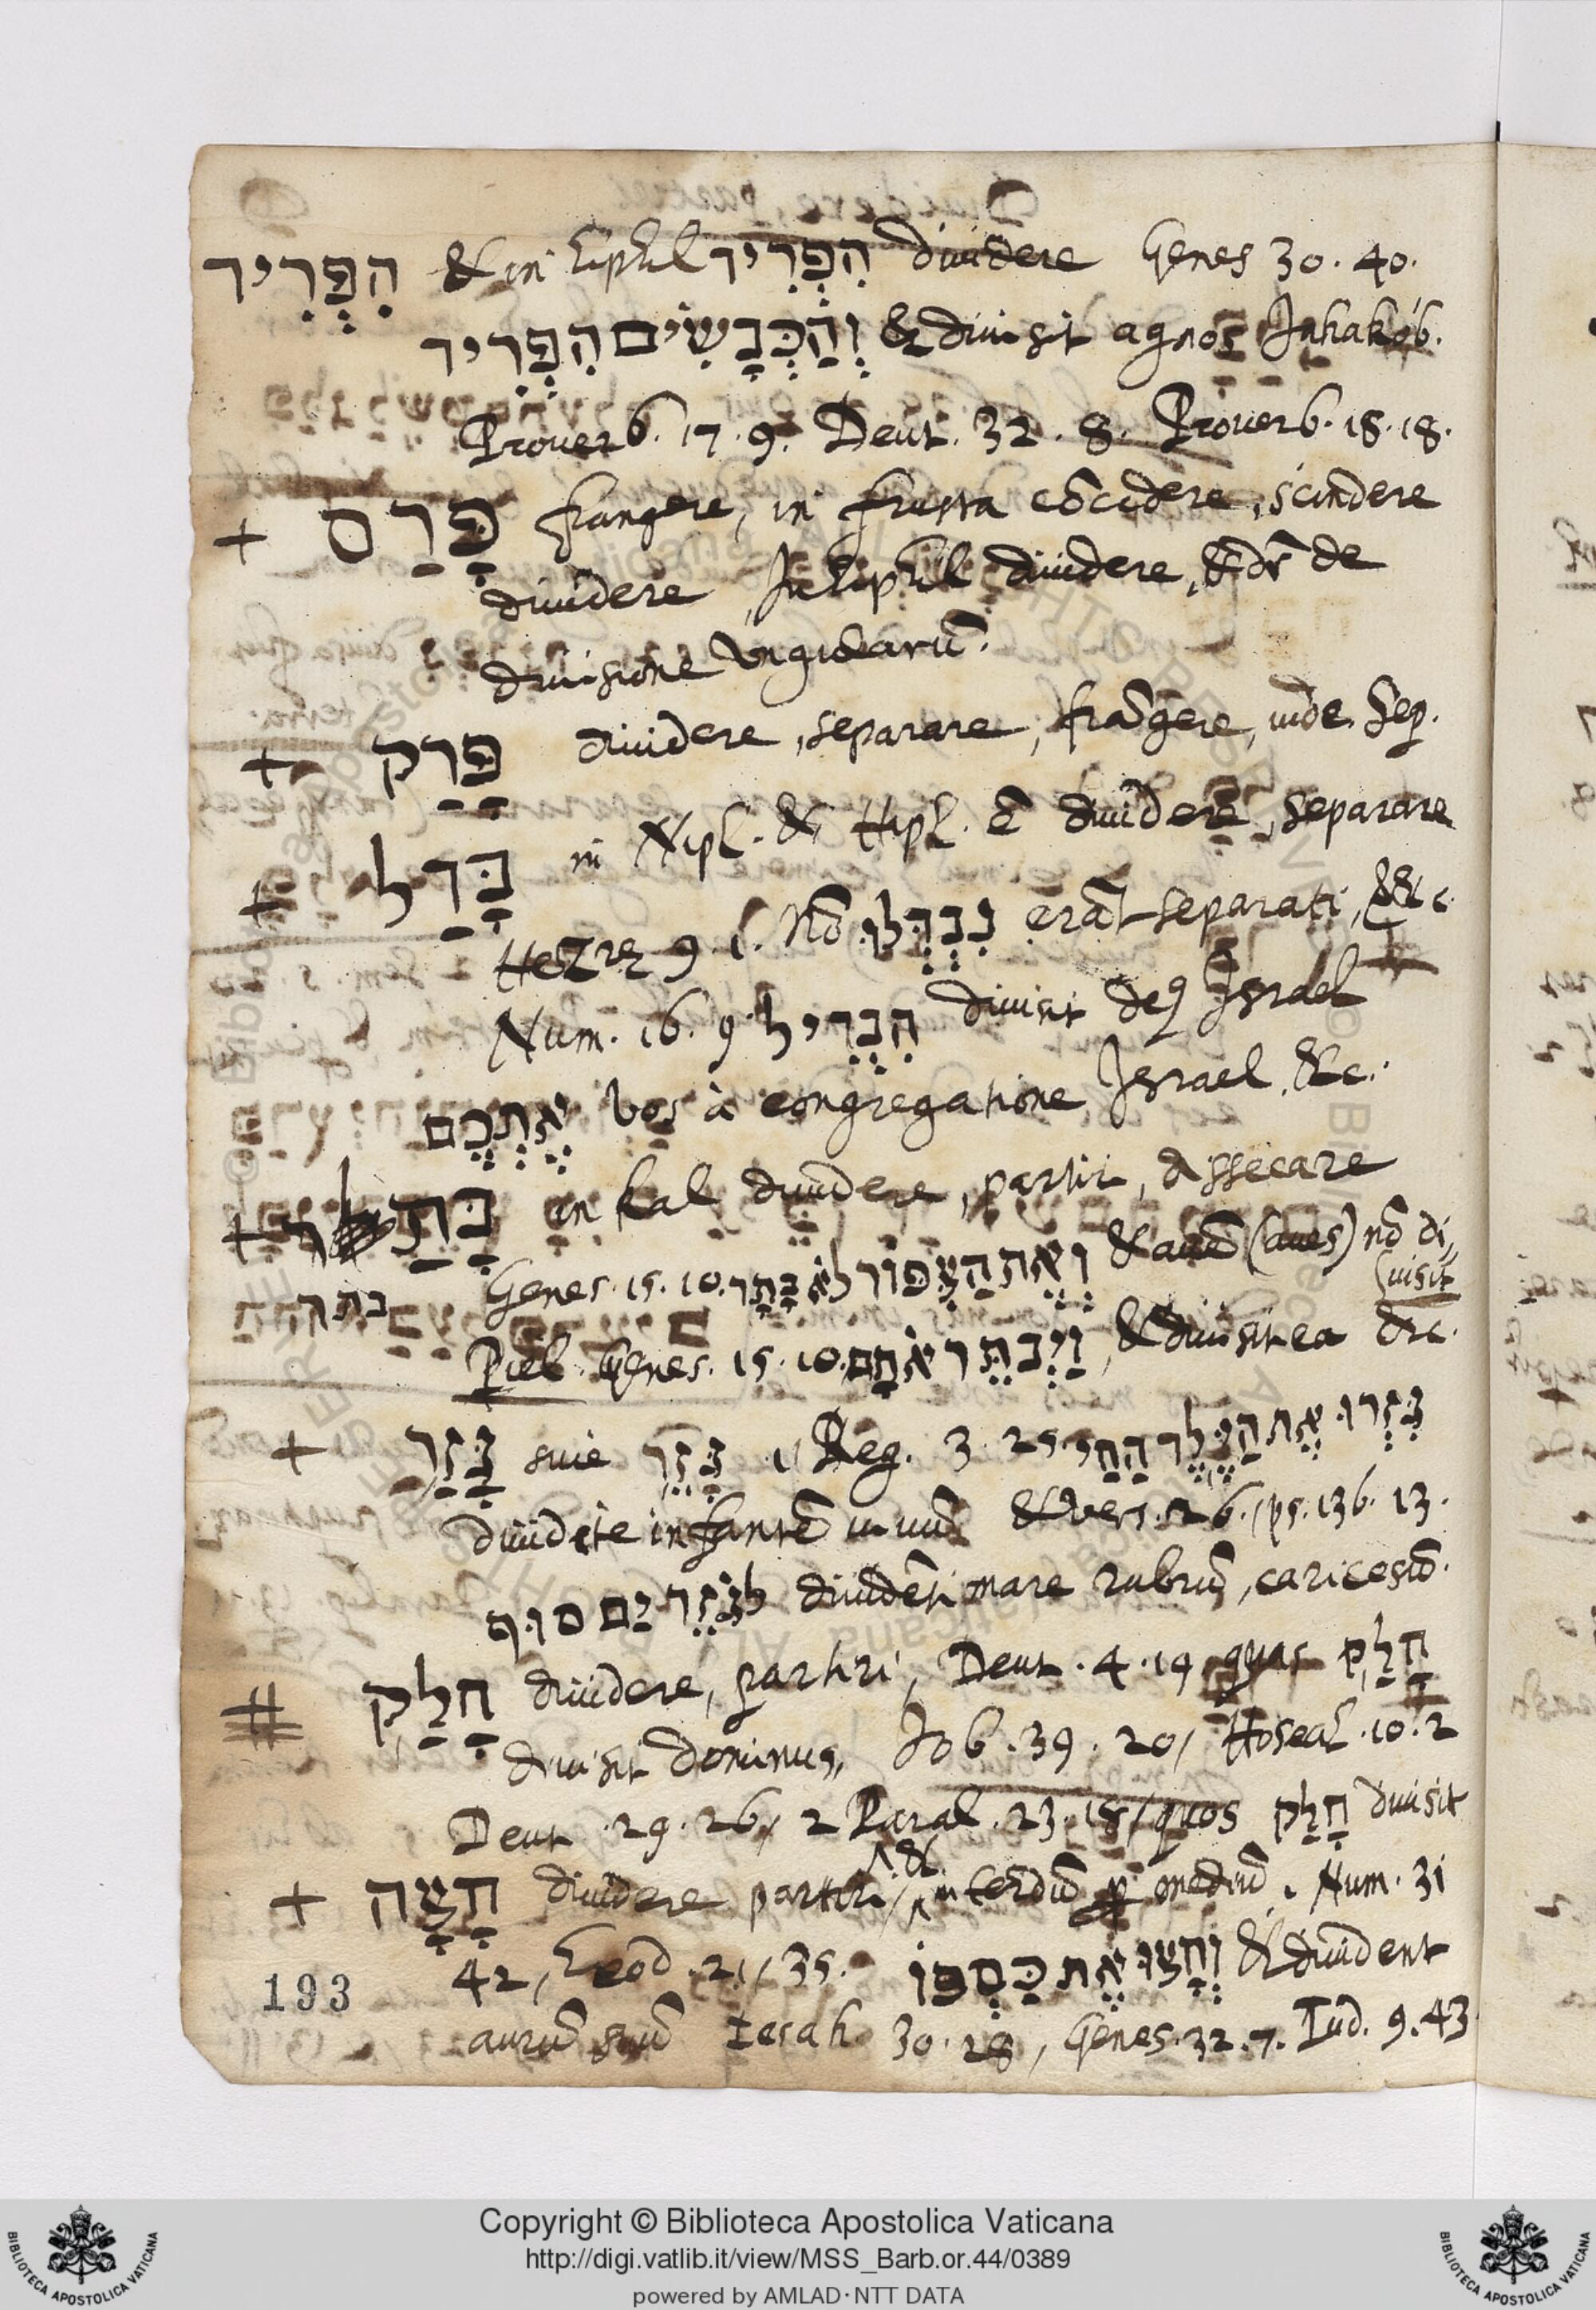 הִפְרִיד & in hiphil הִפְרִיד dividere Genes 30. 40.
וְהַכְּבָשִׂים הִפְרִיד & divisit agnos Jahakob.
Proverb. 17. 9. Deut. 32. 8. Proverb. 18. 18.
+ פָּרַס frangere, in frusta cõcidere, scindere
dividere, In hiphil dividere, & dr̃ de
divisione ungularũ.
+ פָּרַק dividere, separare, frãgere, vide Sep.
+ בָּדַל in Niph. & Hiph. ẽ dividere, separare
Hezræ 9. 1. Nõ נִבְדְּלוּ erãt separati, &c.
Num. 16. 9. הִבְדִּיל divisit deꝰ Israel
אֶתְכֶם vos à congregatione Israel, &c.
+ בָּתַר in kal dividere, partiri, dissecare
Genes. 15. 10. וְאֶת הַצִּפּוֹר לֹא בָתָר & avẽ (aves) nõ di
(visit
בתר
Piel. Genes. 15. 10. וַיְבַתֵּר אֹתָם, & divisit ea &c.
+ גָּזַר sive גְּזֹר 1 Reg. 3. 25 גִּזְרוּ אֶת הַיֶּלֶד הַחַי
dividite infantẽ vivũ & vers. 26. ps. 136. 13.
לְגֹזֵר יַם סוּף dividẽti mare rubrũ, caricosũ.
# חָלַק dividere, partiri, Deut. 4. 19 quas חָלַק
divisit dominus, Job. 39. 20, Hoseah. 10. 2
Deut. 29. 26, 2 Paral. 23. 18, quos חָלַק divisit
+ חָצָה dividere partiri, & interdũ p mediũ. Num. 31
42, Exod. 21, 35. וְחָצוּ אֶת כַּסְפּוֹ & divident
aurũ suũ Iesah 30. 28, Genes. 32. 7. Iud. 9. 43
193
© Biblioteca Apostolica Vaticana
Copyright © Biblioteca Apostolica Vaticana
http://digi.vatlib.it/view/MSS_Barb.or.44/0389
powered by AMLAD·NTT DATA
BIBLIOTECA APOSTOLICA VATICANA
BIBLIOTECA APOSTOLICA VATICANA